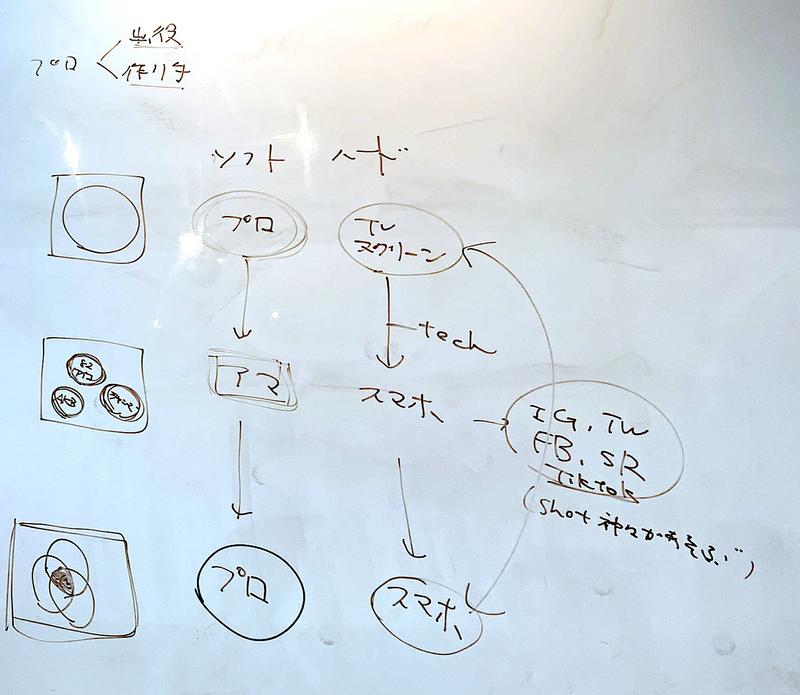 プロ
出役
作り手
ソフト ハード
プロ
TV
スクリーン
tech
アマ
スマホ
IG, TW
FB, SR
TikTok
(Shot 神々があそぶ")
プロ
スマホ